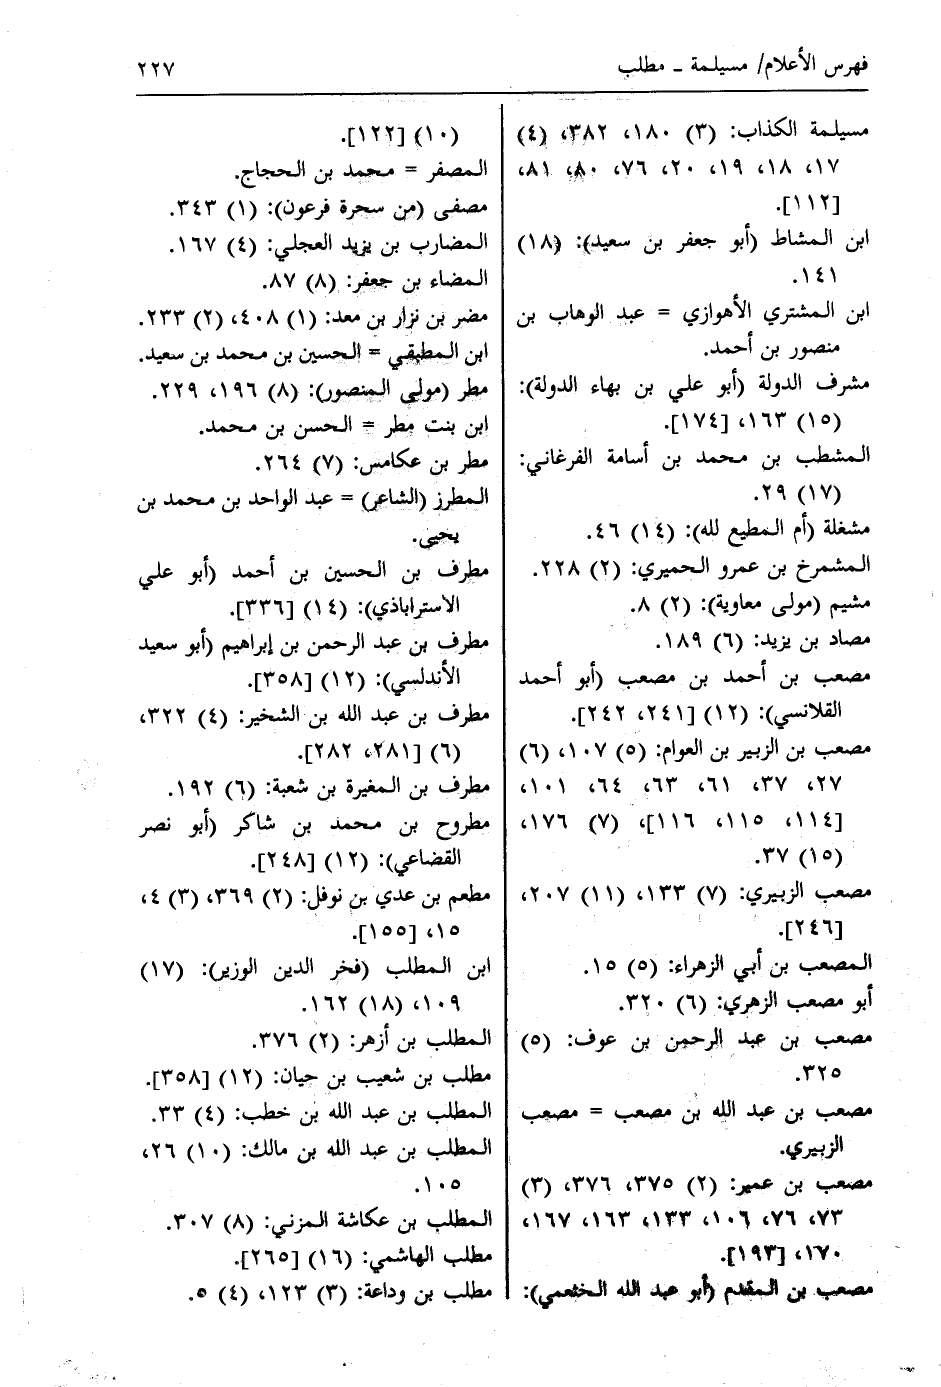 فهرس الأعلام/ مسيلمة ـ مطلب
٢٢٧
مسيلمة الكذاب: (٣) ١٨٠، ٣٨٢، (٤)
١٧، ١٨، ١٩، ٢٠، ٧٦، ٨٠، ٨١،
[١١٢].
ابن المشاط (أبو جعفر بن سعيد): (١٨)
١٤١.
ابن المشتري الأهوازي = عبد الوهاب بن
منصور بن أحمد.
مشرف الدولة (أبو علي بن بهاء الدولة):
(١٥) ١٦٣، [١٧٤].
المشطب بن محمد بن أسامة الفرغاني:
(١٧) ٢٩.
مشغلة (أم المطيع لله): (١٤) ٤٦.
المشمرخ بن عمرو الحميري: (٢) ٢٢٨.
مشيم (مولى معاوية): (٢) ٨.
مصاد بن يزيد: (٦) ١٨٩.
مصعب بن أحمد بن مصعب (أبو أحمد
القلانسي): (١٢) [٢٤١، ٢٤٢].
مصعب بن الزبير بن العوام: (٥) ١٠٧، (٦)
٢٧، ٣٧، ٦١، ٦٣، ٦٤، ١٠١،
[١١٤، ١١٥، ١١٦]، (٧) ١٧٦،
(١٥) ٣٧.
مصعب الزبيري: (٧) ١٣٣، (١١) ٢٠٧،
[٢٤٦].
المصعب بن أبي الزهراء: (٥) ١٥.
أبو مصعب الزهري: (٦) ٣٢٠.
مصعب بن عبد الرحمن بن عوف: (٥)
٣٢٥.
مصعب بن عبد الله بن مصعب = مصعب
الزبيري.
مصعب بن عمير: (٢) ٣٧٥، ٣٧٦، (٣)
٧٣، ٧٦، ١٠٦، ١٣٣، ١٦٣، ١٦٧،
١٧٠، [١٩٣].
مصعب بن المقدم (أبو عبد الله الخثعمي):
(١٠) [١٢٢].
المصفر = محمد بن الحجاج.
مصفى (من سحرة فرعون): (١) ٣٤٣.
المضارب بن يزيد العجلي: (٤) ١٦٧.
المضاء بن جعفر: (٨) ٨٧.
مضر بن نزار بن معد: (١) ٤٠٨، (٢) ٢٣٣.
ابن المطبقي = الحسين بن محمد بن سعيد.
مطر (مولى المنصور): (٨) ١٩٦، ٢٢٩.
ابن بنت مطر = الحسن بن محمد.
مطر بن عكامس: (٧) ٢٦٤.
المطرز (الشاعر) = عبد الواحد بن محمد بن
يحيى.
مطرف بن الحسين بن أحمد (أبو علي
الاستراباذي): (١٤) [٣٣٦].
مطرف بن عبد الرحمن بن إبراهيم (أبو سعيد
الأندلسي): (١٢) [٣٥٨].
مطرف بن عبد الله بن الشخير: (٤) ٣٢٢،
(٦) [٢٨١، ٢٨٢].
مطرف بن المغيرة بن شعبة: (٦) ١٩٢.
مطروح بن محمد بن شاكر (أبو نصر
القضاعي): (١٢) [٢٤٨].
مطعم بن عدي بن نوفل: (٢) ٣٦٩، (٣) ٤،
١٥، [١٥٥].
ابن المطلب (فخر الدين الوزير): (١٧)
١٠٩، (١٨) ١٦٢.
المطلب بن أزهر: (٢) ٣٧٦.
مطلب بن شعيب بن حيان: (١٢) [٣٥٨].
المطلب بن عبد الله بن خطب: (٤) ٣٣.
المطلب بن عبد الله بن مالك: (١٠) ٢٦،
١٠٥.
المطلب بن عكاشة المزني: (٨) ٣٠٧.
مطلب الهاشمي: (١٦) [٢٦٥].
مطلب بن وداعة: (٣) ١٢٣، (٤) ٥.